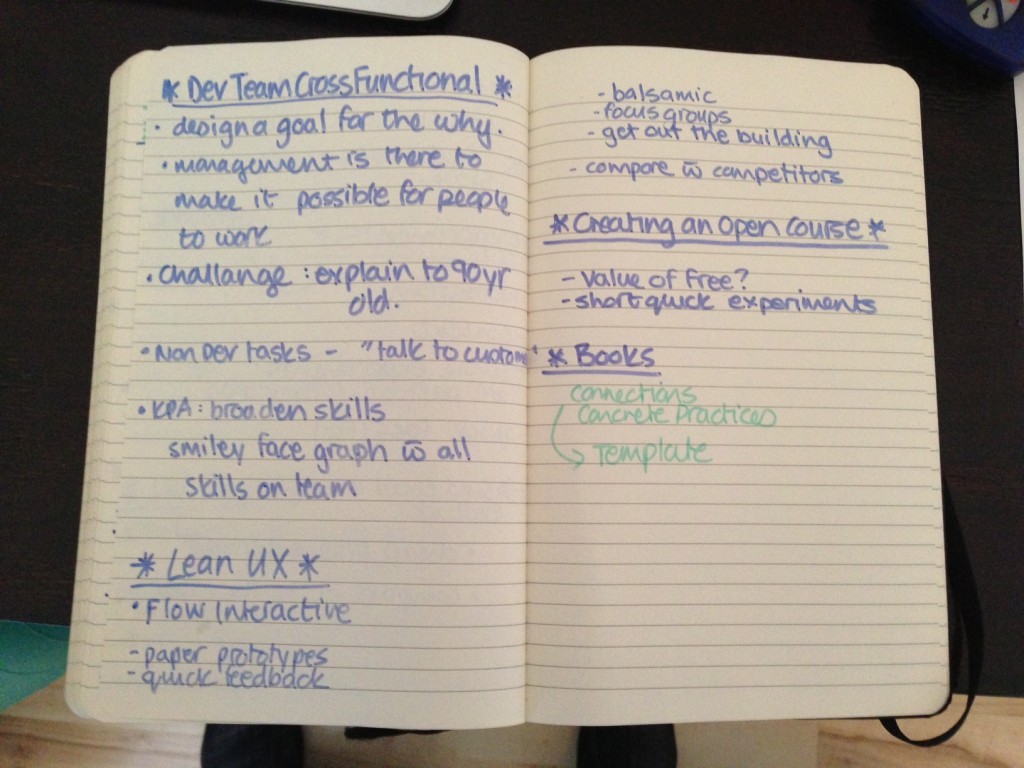 * Dev Team Cross Functional *
• design a goal for the why.
• management is there to
make it possible for people
to work
• Challange : explain to 90yr
old.
• Non Dev tasks - "talk to customer"
• KPA : broaden skills
smiley face graph w̄ all
skills on team
* Lean UX *
• Flow Interactive
- paper prototypes
- quick feedback
- balsamic
- focus groups
- get out the building
- compare w̄ competitors
* Creating an Open Course *
- Value of Free?
- short quick experiments
* Books
connections
Concrete Practices
Template